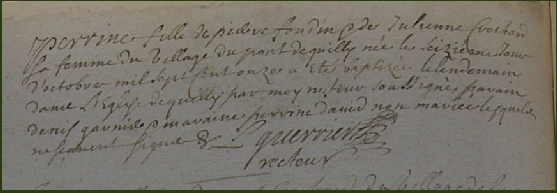 perrine fille de pierre fondin & de Julienne Crochard
sa femme du village du pont de quilly née le seizieme Jour
d'octobre mil sept cent onze a été baptizée le lendemain
dans l'Eglise de quilly par moy recteur soussigné parain
denis garnier maraine perrine david non mariée lesquels
ne scavent signer &
guerrier
recteur